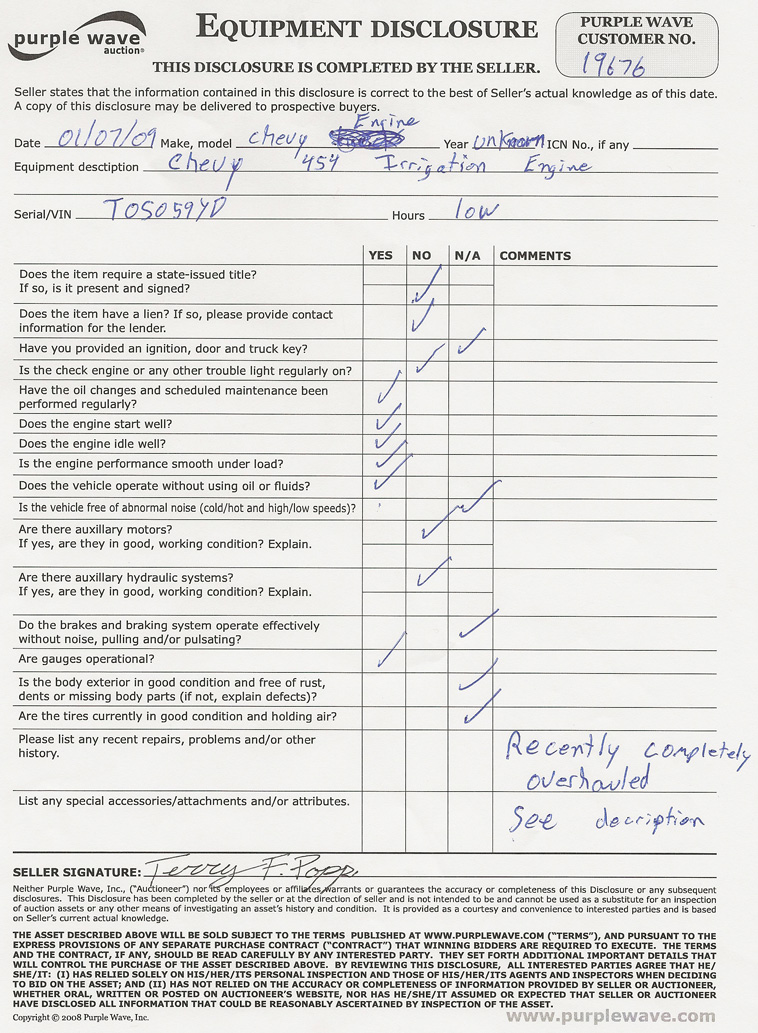 purple wave
auction®
EQUIPMENT DISCLOSURE
THIS DISCLOSURE IS COMPLETED BY THE SELLER.
PURPLE WAVE
CUSTOMER NO.
19676
Seller states that the information contained in this disclosure is correct to the best of Seller's actual knowledge as of this date.
A copy of this disclosure may be delivered to prospective buyers.
Engine
Date 01/07/09 Make, model Chevy Year Unknown ICN No., if any
Equipment desctiption Chevy '454 Irrigation Engine
Serial/VIN T0S059YD Hours low
YES NO N/A COMMENTS
Does the item require a state-issued title?
If so, is it present and signed? ✓
Does the item have a lien? If so, please provide contact
information for the lender. ✓
Have you provided an ignition, door and truck key? ✓
Is the check engine or any other trouble light regularly on? ✓
Have the oil changes and scheduled maintenance been
performed regularly? ✓
Does the engine start well? ✓
Does the engine idle well? ✓
Is the engine performance smooth under load? ✓
Does the vehicle operate without using oil or fluids? ✓
Is the vehicle free of abnormal noise (cold/hot and high/low speeds)? ✓
Are there auxillary motors? ✓
If yes, are they in good, working condition? Explain.
Are there auxillary hydraulic systems? ✓
If yes, are they in good, working condition? Explain.
Do the brakes and braking system operate effectively
without noise, pulling and/or pulsating? ✓
Are gauges operational? ✓
Is the body exterior in good condition and free of rust,
dents or missing body parts (if not, explain defects)? ✓
Are the tires currently in good condition and holding air? ✓
Please list any recent repairs, problems and/or other
history.
Recently completely
overhauled
List any special accessories/attachments and/or attributes.
See decription
SELLER SIGNATURE: Terry F. Popp
Neither Purple Wave, Inc., ("Auctioneer") nor its employees or affiliates warrants or guarantees the accuracy or completeness of this Disclosure or any subsequent
disclosures. This Disclosure has been completed by the seller or at the direction of seller and is not intended to be and cannot be used as a substitute for an inspection
of auction assets or any other means of investigating an asset's history and condition. It is provided as a courtesy and convenience to interested parties and is based
on Seller's current actual knowledge.
THE ASSET DESCRIBED ABOVE WILL BE SOLD SUBJECT TO THE TERMS PUBLISHED AT WWW.PURPLEWAVE.COM ("TERMS"), AND PURSUANT TO THE
EXPRESS PROVISIONS OF ANY SEPARATE PURCHASE CONTRACT ("CONTRACT") THAT WINNING BIDDERS ARE REQUIRED TO EXECUTE. THE TERMS
AND THE CONTRACT, IF ANY, SHOULD BE READ CAREFULLY BY ANY INTERESTED PARTY. THEY SET FORTH ADDITIONAL IMPORTANT DETAILS THAT
WILL CONTROL THE PURCHASE OF THE ASSET DESCRIBED ABOVE. BY REVIEWING THIS DISCLOSURE, ALL INTERESTED PARTIES AGREE THAT HE/
SHE/IT: (I) HAS RELIED SOLELY ON HIS/HER/ITS PERSONAL INSPECTION AND THOSE OF HIS/HER/ITS AGENTS AND INSPECTORS WHEN DECIDING
TO BID ON THE ASSET; AND (II) HAS NOT RELIED ON THE ACCURACY OR COMPLETENESS OF INFORMATION PROVIDED BY SELLER OR AUCTIONEER,
WHETHER ORAL, WRITTEN OR POSTED ON AUCTIONEER'S WEBSITE, NOR HAS HE/SHE/IT ASSUMED OR EXPECTED THAT SELLER OR AUCTIONEER
HAVE DISCLOSED ALL INFORMATION THAT COULD BE REASONABLY ASCERTAINED BY INSPECTION OF THE ASSET.
Copyright © 2008 Purple Wave, Inc.
www.purplewave.com